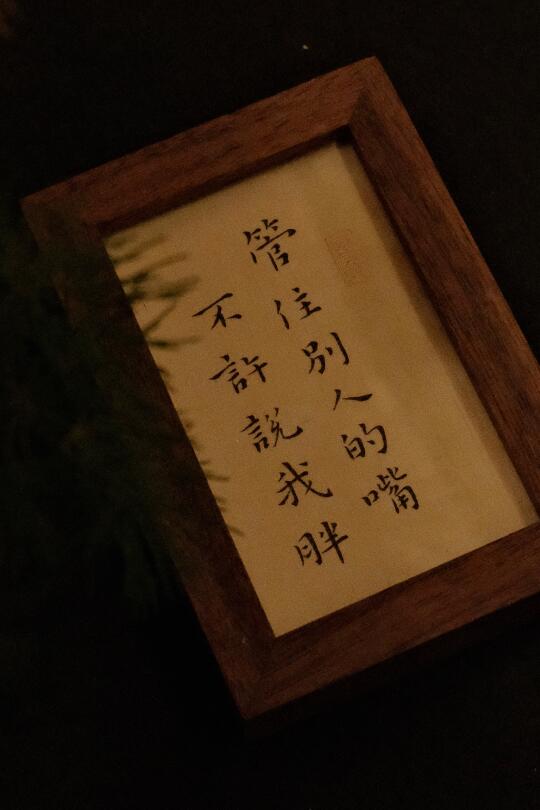 管住別人的嘴
不許說我胖